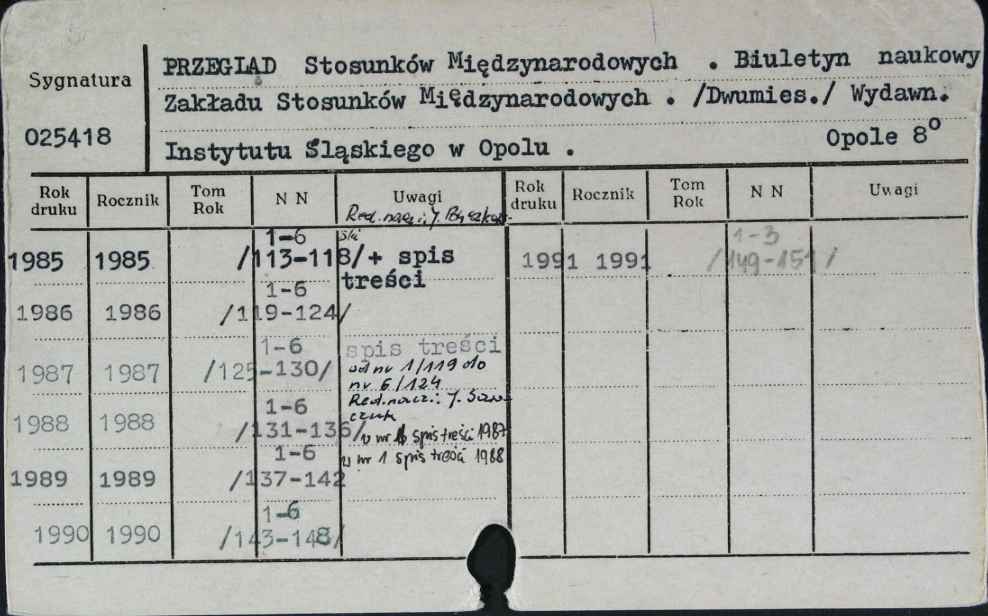 Sygnatura
025418
PRZEGLĄD Stosunków Międzynarodowych . Biuletyn naukowy
Zakładu Stosunków Międzynarodowych . /Dwumies./ Wydawn.
Instytutu Śląskiego w Opolu . Opole 8º
Rok druku Rocznik Tom Rok N N Uwagi Rok druku Rocznik Tom Rok N N Uwagi
Red. nacz: J.
1-6
1985 1985 /113-118/+ spis
treści
1-3
1991 1991 /149-151/
1-6
1986 1986 /119-124/
1-6 spis treści
1987 1987 /125-130/ od nr 1/119 do
nr 6/124
Red. nacz: J.
1-6
1988 1988 /131-136/ w nr spis treści 1987
1-6 w nr 1 spis treści 1988
1989 1989 /137-142
1-6
1990 1990 /143-148/